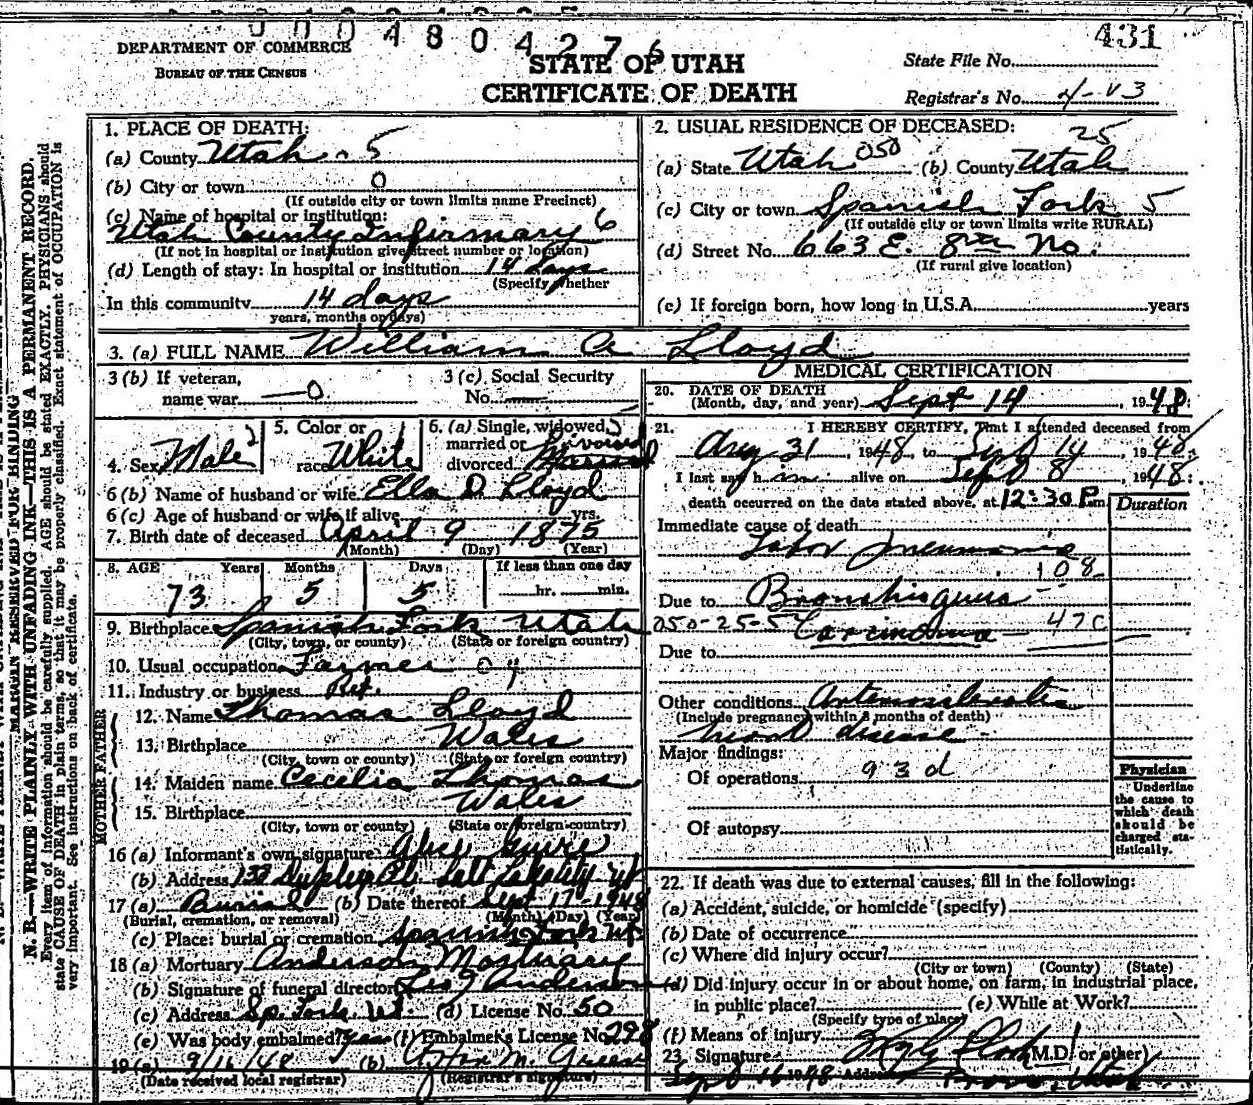 0004804276
431
DEPARTMENT OF COMMERCE
BUREAU OF THE CENSUS
STATE OF UTAH
CERTIFICATE OF DEATH
State File No.
Registrar's No. 4-V3
N. B.—WRITE PLAINLY WITH UNFADING INK—THIS IS A PERMANENT RECORD.
Every item of information should be carefully supplied. AGE should be stated EXACTLY. PHYSICIANS should
state CAUSE OF DEATH in plain terms, so that it may be properly classified. Exact statement of OCCUPATION is
very important. See instructions on back of certificate.
MARGIN RESERVED FOR BINDING
1. PLACE OF DEATH:
(a) County Utah 5
(b) City or town 0
(If outside city or town limits name Precinct)
(c) Name of hospital or institution:
Utah County Infirmary 6
(If not in hospital or institution give street number or location)
(d) Length of stay: In hospital or institution 14 days
(Specify whether
In this community 14 days
years, months or days)
2. USUAL RESIDENCE OF DECEASED:
25
(a) State Utah 050 (b) County Utah
(c) City or town Spanish Fork 5
(If outside city or town limits write RURAL)
(d) Street No. 663 E. 8th No.
(If rural give location)
(e) If foreign born, how long in U.S.A. years
3. (a) FULL NAME William A Lloyd
3 (b) If veteran, name war 0
3 (c) Social Security No.
4. Sex Male 2
5. Color or race White
6. (a) Single, widowed, married or divorced 5
6 (b) Name of husband or wife Ella D Lloyd
6 (c) Age of husband or wife if alive yrs.
7. Birth date of deceased April 9 1875
(Month) (Day) (Year)
8. AGE Years Months Days If less than one day
73 5 5 hr. min.
9. Birthplace Spanish Fork Utah
(City, town, or county) (State or foreign country)
10. Usual occupation Farmer
11. Industry or business Ret.
FATHER
12. Name Thomas Lloyd
13. Birthplace Wales
(City, town or county) (State or foreign country)
MOTHER
14. Maiden name Cecelia Thomas
15. Birthplace Wales
(City, town or county) (State or foreign country)
16 (a) Informant's own signature
(b) Address
17 (a) Burial (b) Date thereof Sept 17-1948
(Burial, cremation, or removal) (Month) (Day) (Year)
(c) Place: burial or cremation Spanish Fork Ut
18 (a) Mortuary Anderson Mortuary
(b) Signature of funeral director Anderson
(c) Address Sp. Fork, Ut. (d) License No. 50
(e) Was body embalmed? yes (f) Embalmer's License No. 298
19 (a) 9/16/48 (b) Green
(Date received local registrar) (Registrar's signature)
MEDICAL CERTIFICATION
20. DATE OF DEATH
(Month, day, and year) Sept 14, 1948.
21. I HEREBY CERTIFY, That I attended deceased from
Aug 31, 1948, to Sept 14 1948.
I last saw him alive on Sept 8, 1948.
death occurred on the date stated above, at 12:30 P.m.
Duration
Immediate cause of death
Lobar Pneumonia
108
Due to
050-25-5 Carcinoma 47C
Due to
Other conditions
(Include pregnancy within 3 months of death)
heart disease
Major findings:
Of operations 93d
Of autopsy
Physician
Underline the cause to which death should be charged statistically.
22. If death was due to external causes, fill in the following:
(a) Accident, suicide, or homicide (specify)
(b) Date of occurrence
(c) Where did injury occur?
(City or town) (County) (State)
(d) Did injury occur in or about home, on farm, in industrial place,
in public place? (e) While at Work?
(Specify type of place)
(f) Means of injury
23. Signature (M.D. or other)
Sept 16 1948 Address Provo, Utah